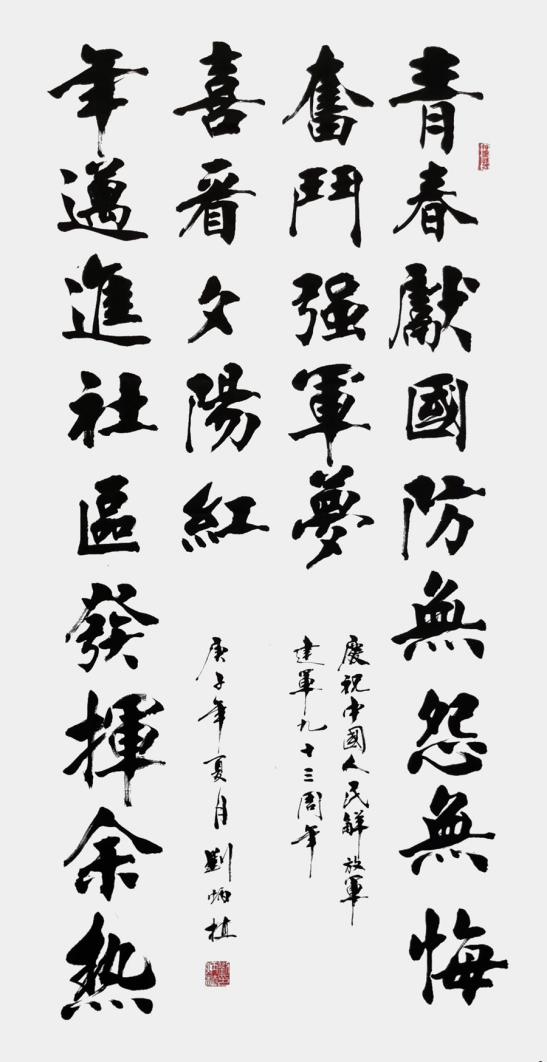 青春獻國防無怨無悔
奮鬥强軍夢
慶祝中國人民解放軍
建軍九十三周年
年邁進社區發揮余熱
喜看夕陽紅
庚子年夏月劉炳植